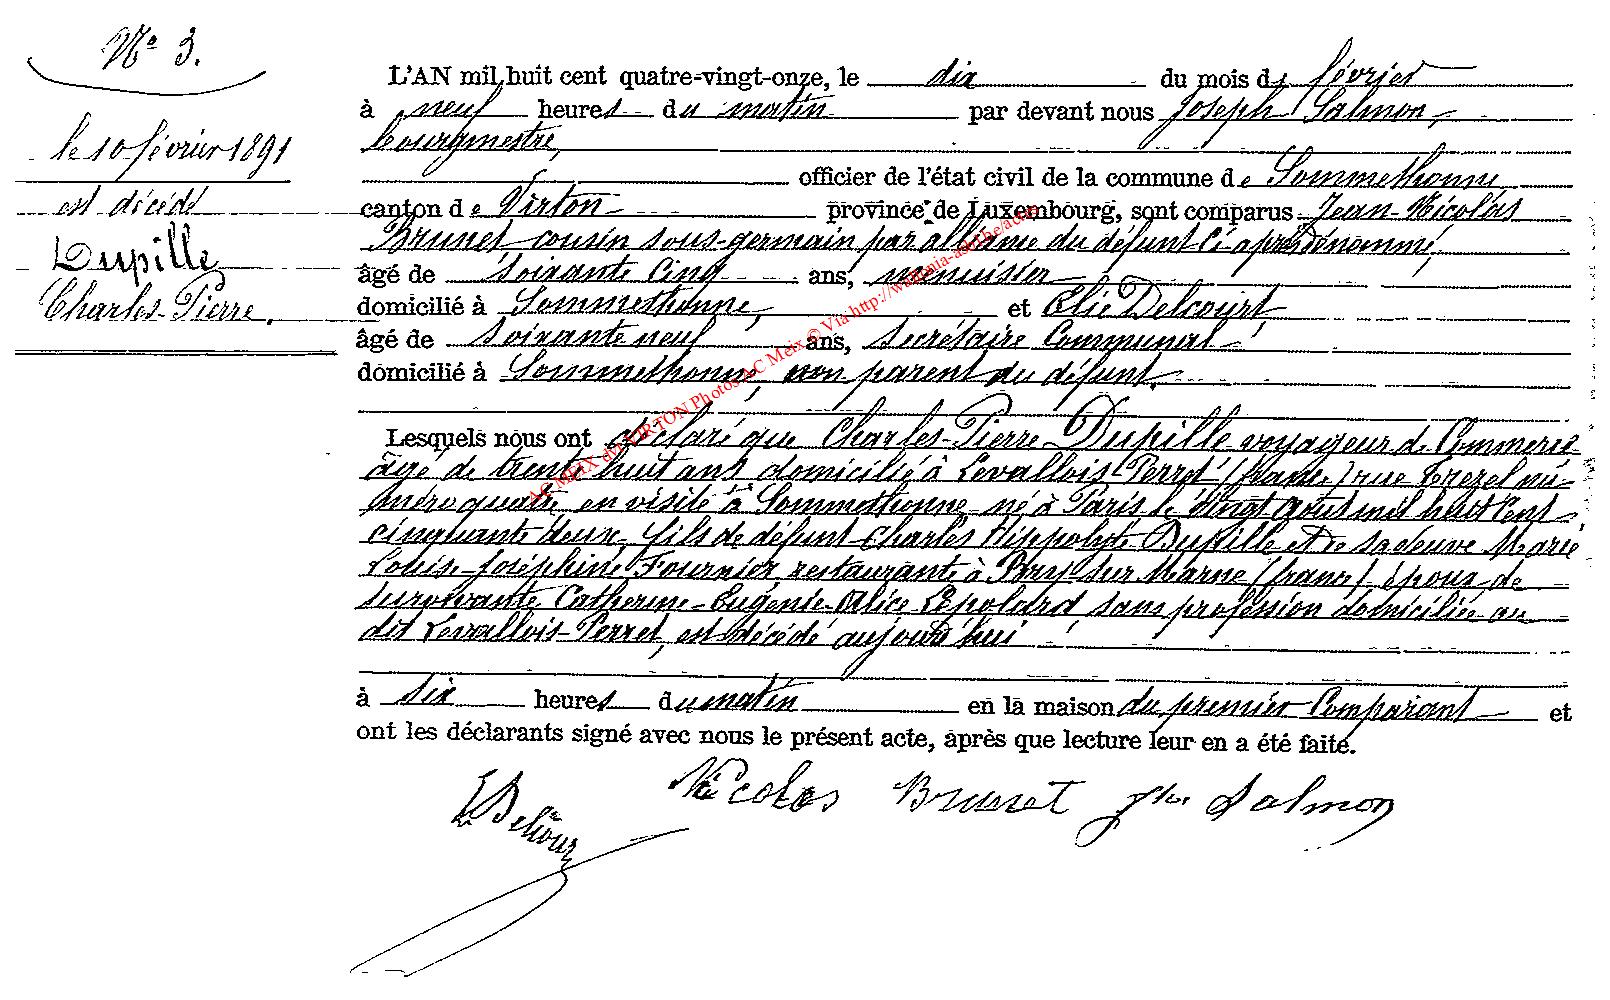 N° 3.
le 10 février 1891
est décédé
Dupille
Charles-Pierre.
L'AN mil huit cent quatre-vingt-onze, le dix du mois de février
à neuf heures du matin par devant nous Joseph Salmon,
bourgmestre,
officier de l'état civil de la commune de Sommethonne
canton de Virton province de Luxembourg, sont comparus Jean-Nicolas
Brunet cousin sous-germain par alliance du défunt ci-après dénommé,
âgé de soixante cinq ans, menuisier
domicilié à Sommethonne, et Elie Delcourt,
âgé de soixante neuf ans, secrétaire communal
domicilié à Sommethonne, non parent du défunt.
Lesquels nous ont déclaré que Charles-Pierre Dupille voyageur de Commerce
âgé de trente huit ans domicilié à Levallois-Perret (france) rue Trezel nu-
méro quatre, en visite à Sommethonne, né à Paris le vingt août mil huit cent
cinquante deux, fils de défunt Charles Hippolyte Dupille et de sa veuve Marie
Louise Joséphine Fournier, restaurante à Bry sur Marne (france), époux de
survivante Catherine-Eugénie-Alice Lepolard, sans profession domiciliée au
dit Levallois-Perret, est décédé aujourd'hui
à six heures du matin en la maison du premier Comparant et
ont les déclarants signé avec nous le présent acte, après que lecture leur en a été faite.
E Delcour Nicolas Brunet Jh. Salmon
AC MEIX dvt VIRTON Photos AC Meix © Via http://wallonia-asbl.be/actes